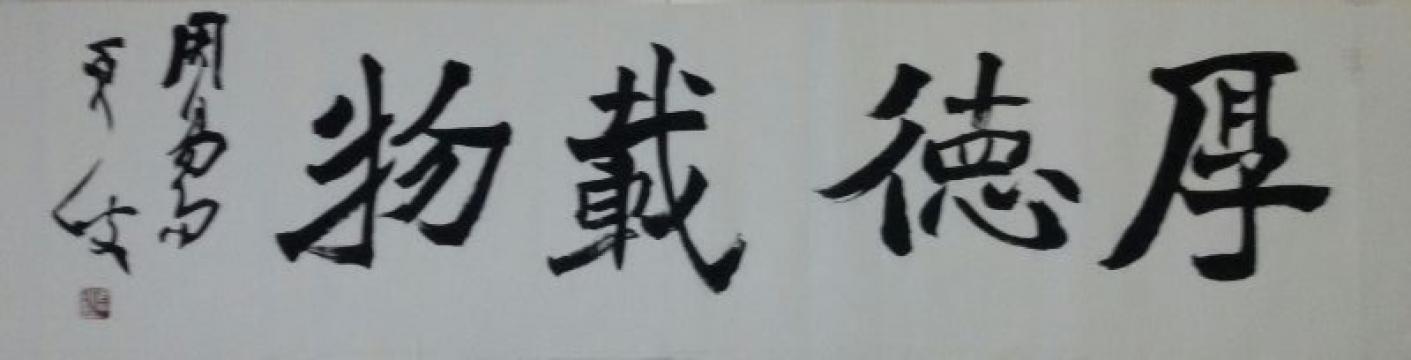 厚德載物
周易句